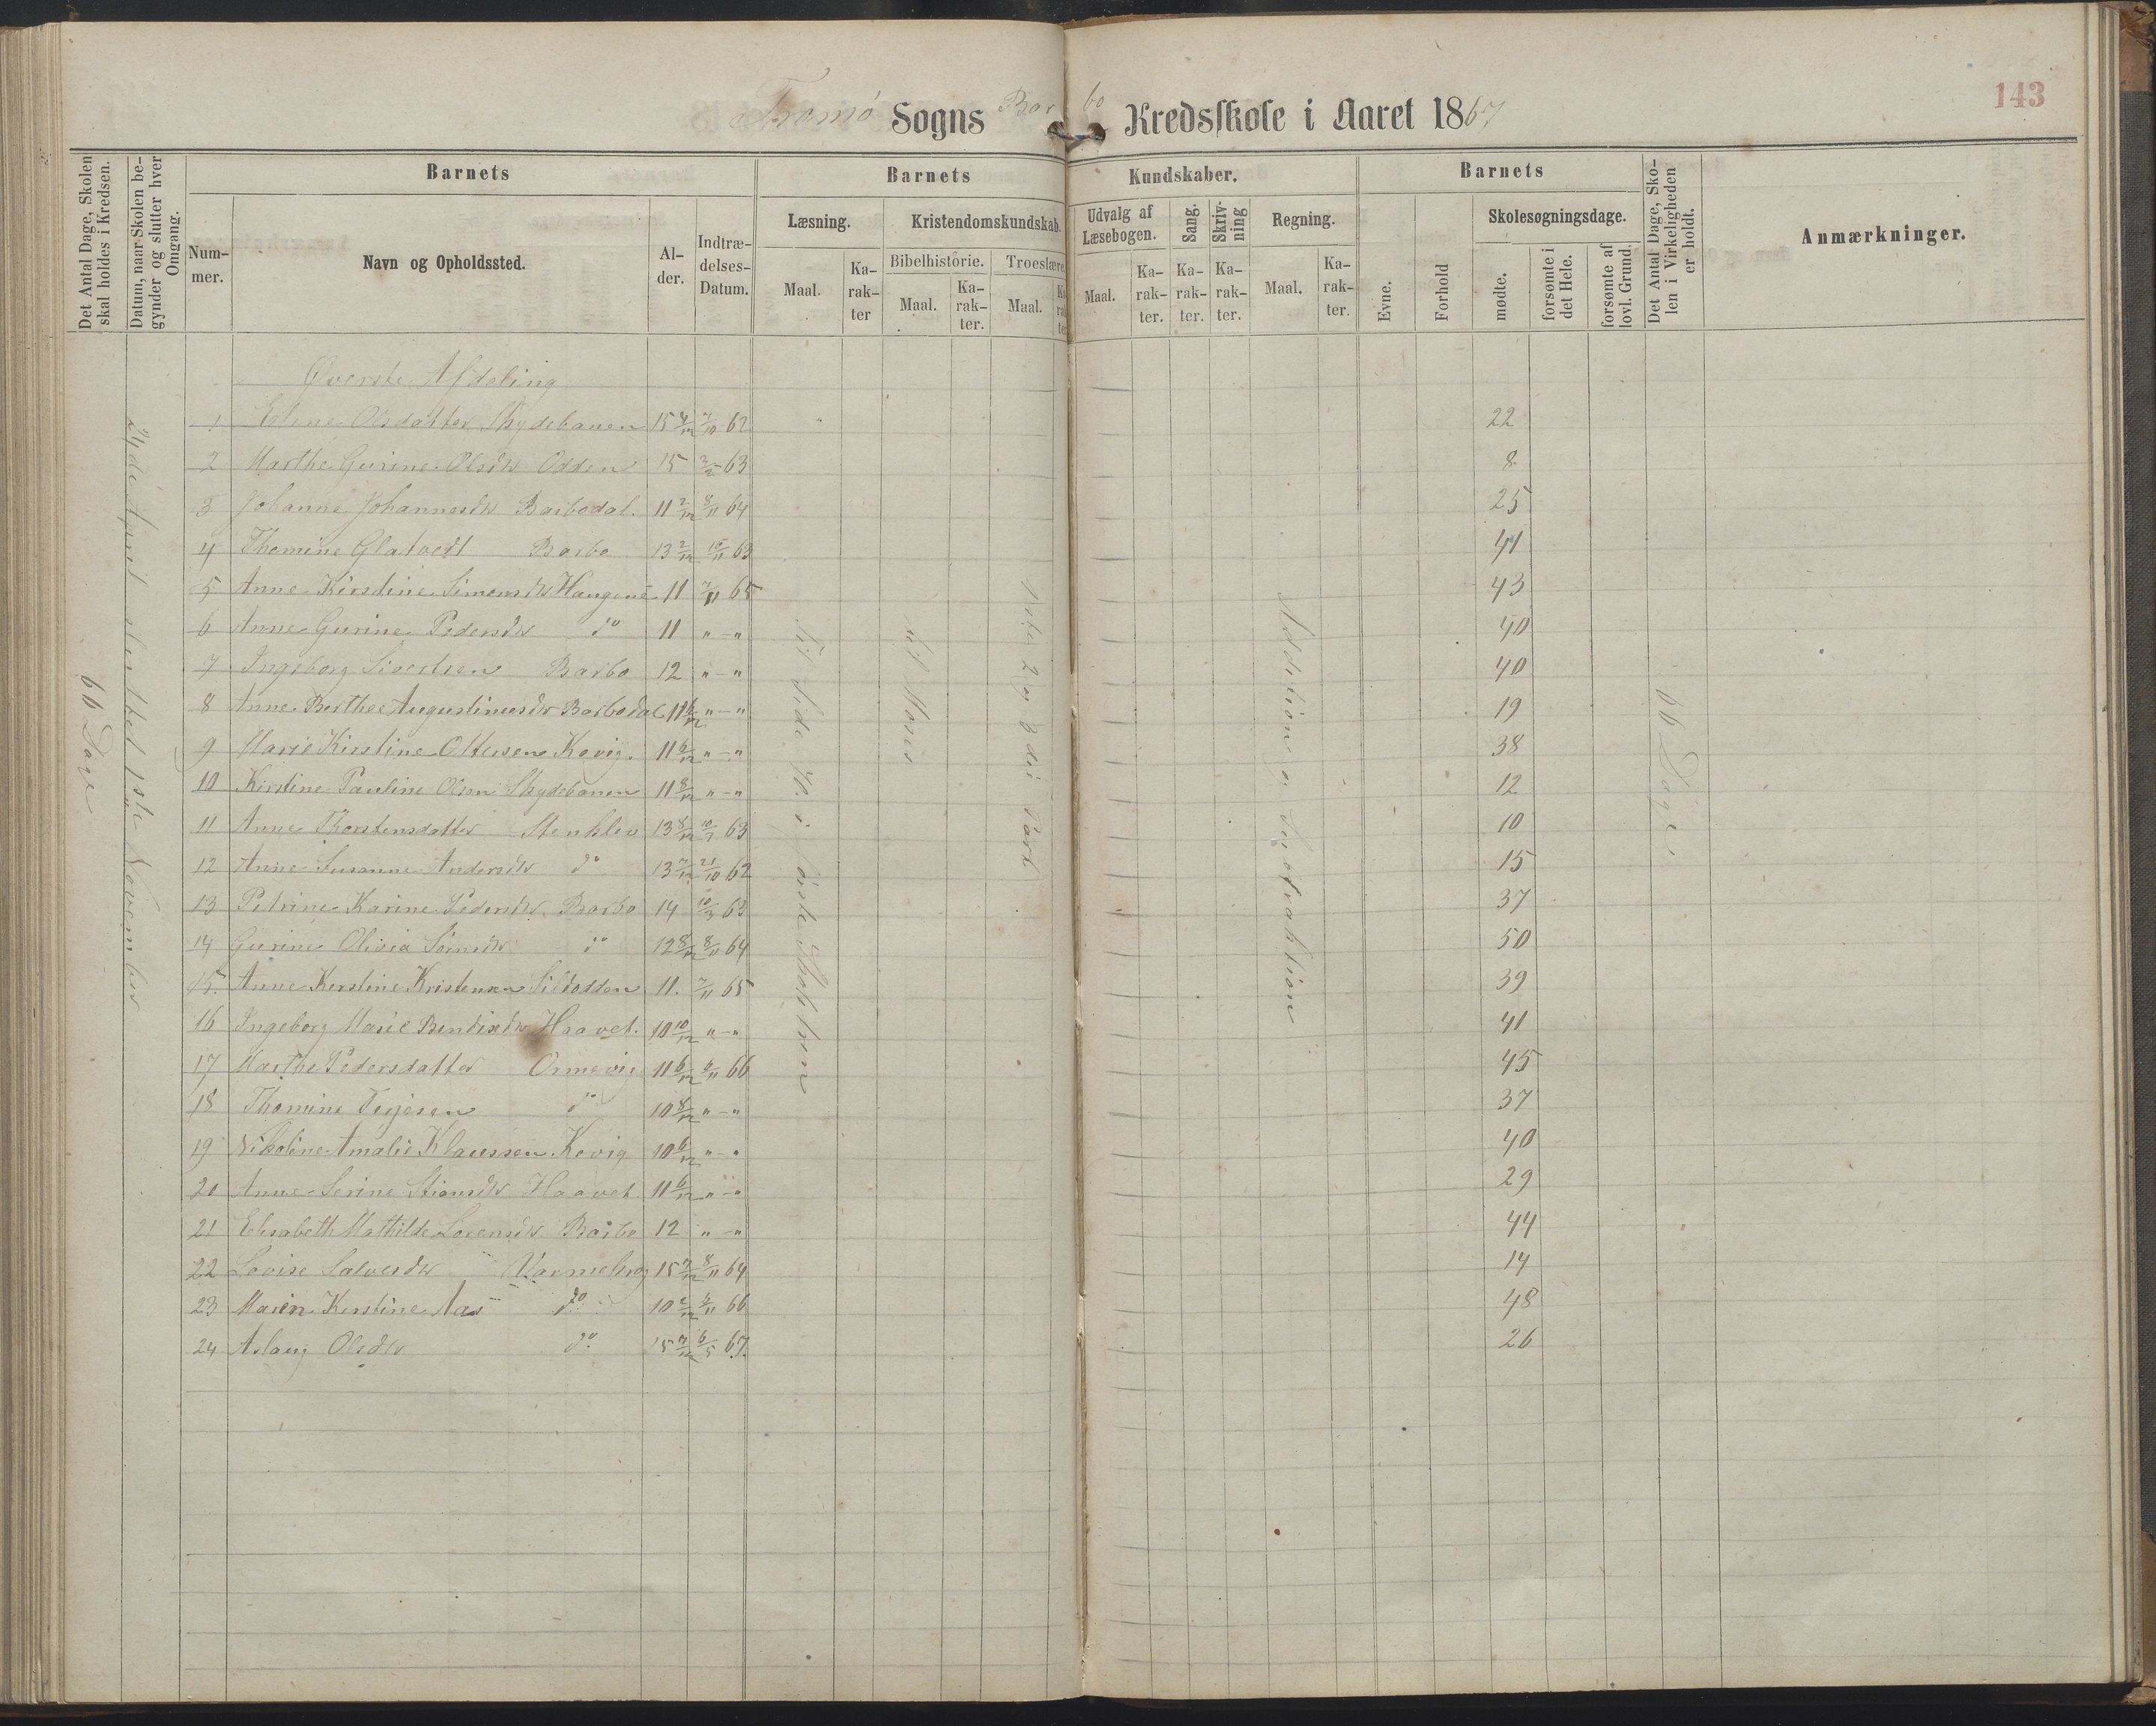 Tromø Sogns Barbo Kredsskole i Aaret 1867
143
Det Antal Dage, Skolen skal holdes i Kredsen.
Datum, naar Skolen begynder og slutter hver Omgang.
Barnets
Barnets
Kundskaber.
Barnets
Det Antal Dage, Skolen i Virkeligheden er holdt.
Anmærkninger.
Nummer.
Navn og Opholdssted.
Alder.
Indtrædelses-Datum.
Læsning.
Kristendomskundskab.
Udvalg af Læsebogen.
Sang.
Skrivning
Regning.
Evne.
Forhold
Skolesøgningsdage.
Maal.
Karakter
Bibelhistorie.
Troeslære.
Maal.
Karakter.
Maal.
Maal.
Karakter.
Karakter.
Karakter.
Maal.
Karakter.
mødte.
forsømte i det Hele.
forsømte af lovl. Grund.
Øverste Afdeling
1 Olsdatter Skydebanen 15 4/12 7/10 62 22
2 Marthe Gurine Olsdtr Odden 15 63 8
3 Johanne Johannesdtr Barbodal. 11 2/12 8/11 64 25
4 Thomine Barbo 13 2/12 /11 63 41
5 Anne Kirstine Simonsdtr Haugene 11 7/11 65 43
6 Anne Gurine Pedersdtr do 11 " - " 40
7 Ingeborg Sivertsen Barbo 12 " - " 40
8 Anne Berthee Augustinusdtr Barbodal 11 " - " 19
9 Marie Kirstine Ottersen Kovig. 11 6/12 " - " 38
10 Kirstine Pauline Olsen Skydebanen 11 8/12 " - " 12
11 Anne Thorstensdatter Stenklev 13 8/12 63 10
12 Anne Susanne Andersdtr do 13 7/12 21/10 62 15
13 Petrine Karine Pedersdtr Barbo 14 10/3 63 37
14 Gurine Olivia Sørnsdtr do 12 8/12 8/11 64 50
15. Anne Kirstine Kristensen Sildodden 11. 7/11 65 39
16 Ingeborg Marie Bendixdtr Haavet. 10 10/12 " - " 41
17 Marthe Pedersdatter Ormevig 11 6/12 /11 66 45
18 Thomine Terjesen do 10 8/12 " - " 37
19 Nikoline Amalie Klaussen Kovig 10 6/12 " - " 40
20 Anne Serine Stiansdtr Haavet. 11 6/12 " - " 29
21 Elisabeth Mathilde Lorensdtr Barbo 12 " - " 44
22 Lovise Salvesdtr 15 7/12 8/11 64 14
23 Maren Kirstine Aas do 10 2/12 /11 66 48
24 Aslaug Olsdtr do. 15 7/12 6/5 67. 26
66 Dage
24de April sluttet 1ste November
Til Side 70. i første Skolten
til Moses
2 og 3die Part
Addition og Subtraktion
66 Dage